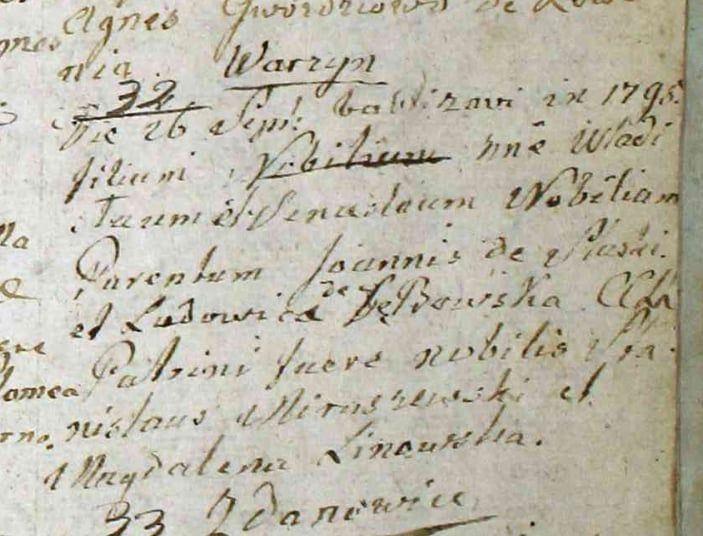 Agnes Gworzdziowa de
nia. Warzyn
32
Die 26 Sept. baptizavi in 1795.
filium Nobilium nne Wladi
slaum et Venceslaum Nobilium
Parentum Joannis de
et Ludowica de Dębowska CLL
Patrini fuere nobilis Sta
nislaus Miroszewski et
Magdalena Linowska.
33 Zdanowice